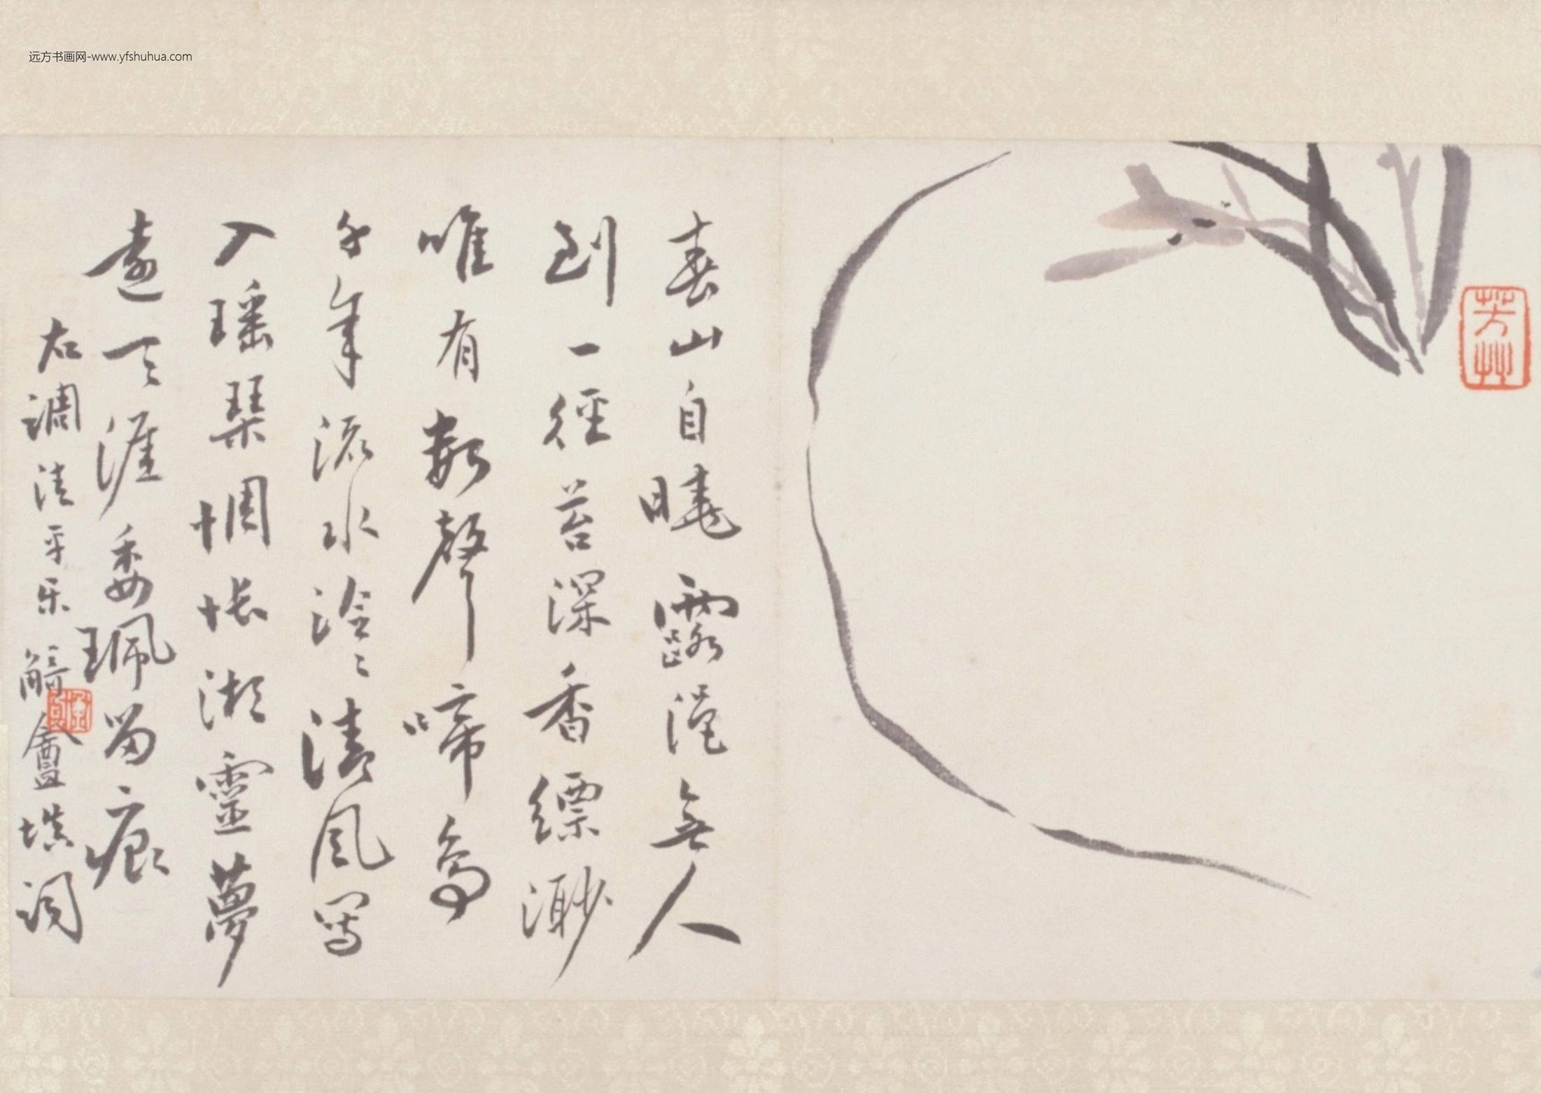 芳艸
春山自曉露浥無人
到一徑苔深香縹緲
唯有數聲啼鳥
千年流水泠〻清風寫
入瑶琹惆悵湘靈夢
遠天涯委珮留痕
右調清平乐 觭盦填詞
远方书画网-www.yfshuhua.com